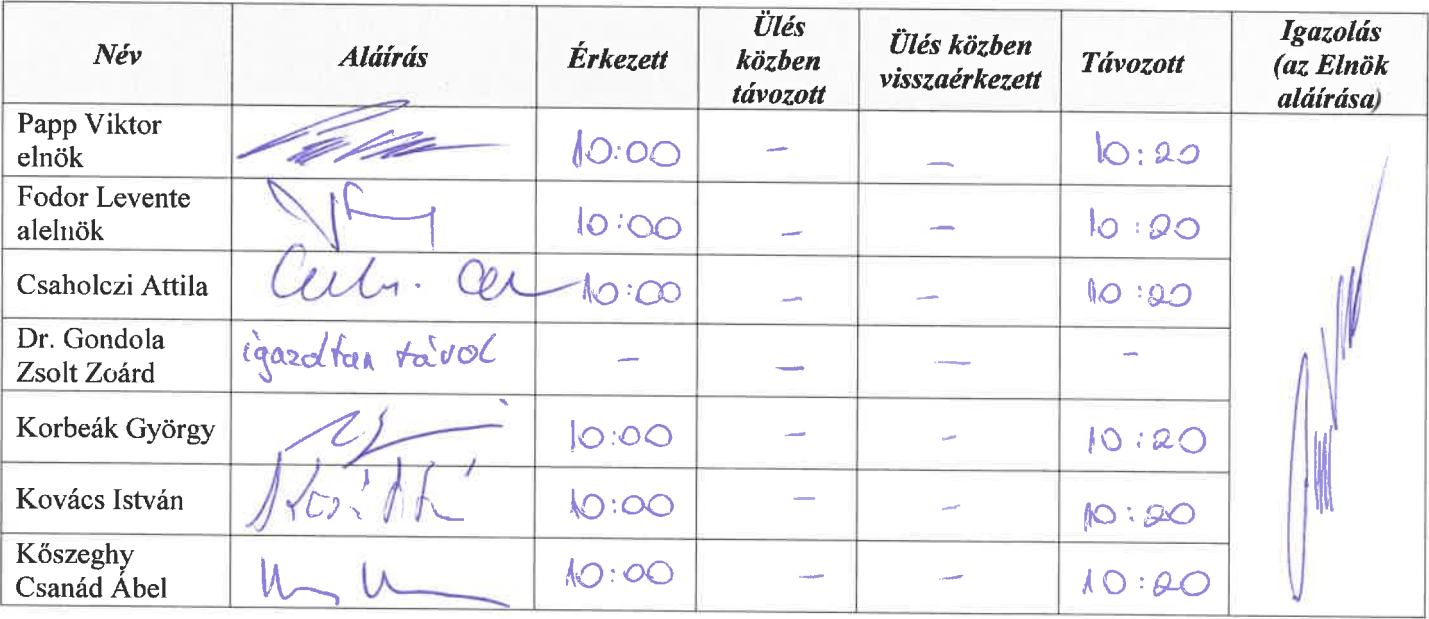 Név Aláírás Érkezett Ülés közben távozott Ülés közben visszaérkezett Távozott Igazolás (az Elnök aláírása)
Papp Viktor elnök 10:00 - - 10:20
Fodor Levente alelnök 10:00 - - 10:20
Csaholczi Attila 10:00 - - 10:20
Dr. Gondola Zsolt Zoárd igazoltan távol - - - -
Korbeák György 10:00 - - 10:20
Kovács István 10:00 - - 10:20
Kőszeghy Csanád Ábel 10:00 - - 10:20